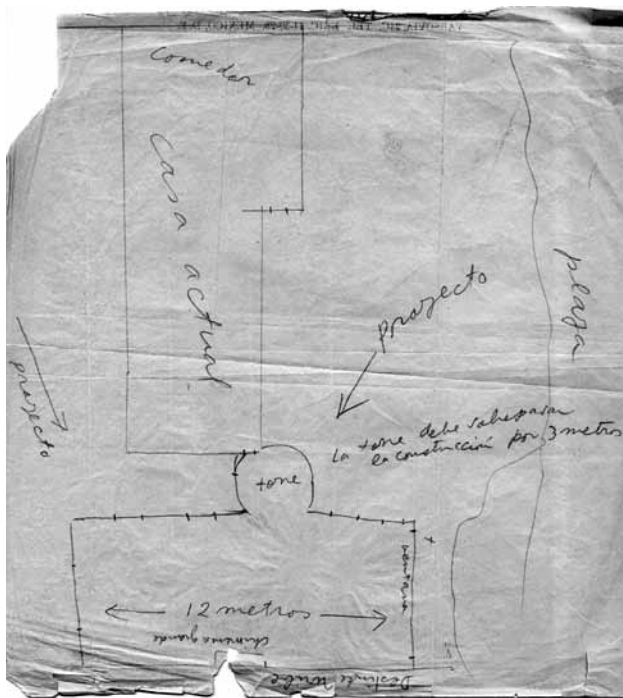 comedor
casa actual
proyecto
proyecto
playa
La torre debe sobrepasar
la construcción por 3 metros
torre
ventana
12 metros
chimenea grande
Deslinde